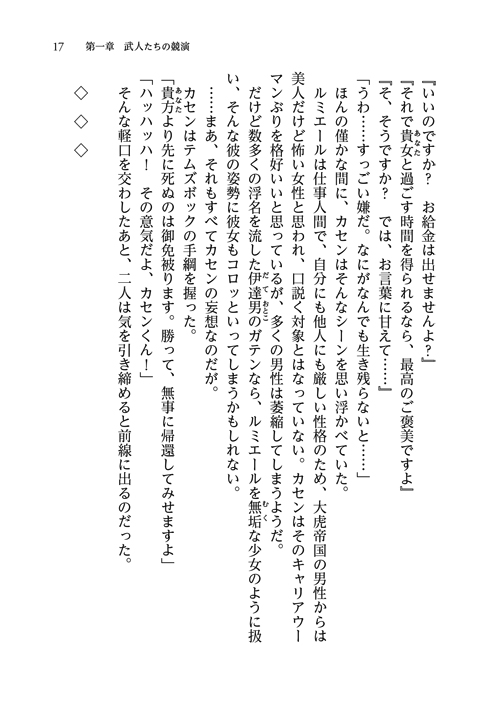 17　第一章　武人たちの競演
『いいのですか？　お給金は出せませんよ？』
『それで貴女と過ごす時間を得られるなら、最高のご褒美ですよ』
『そ、そうですか？　では、お言葉に甘えて……』
「うわ……すっごい嫌だ。なにがなんでも生き残らないと……」
ほんの僅かな間に、カセンはそんなシーンを思い浮かべていた。
ルミエールは仕事人間で、自分にも他人にも厳しい性格のため、大虎帝国の男性からは
美人だけど怖い女性と思われ、口説く対象とはなっていない。カセンはそのキャリアウー
マンぶりを格好いいと思っているが、多くの男性は萎縮してしまうようだ。
だけど数多くの浮名を流した伊達男のガテンなら、ルミエールを無垢な少女のように扱
い、そんな彼の姿勢に彼女もコロッといってしまうかもしれない。
……まあ、それもすべてカセンの妄想なのだが。
カセンはテムズボックの手綱を握った。
「貴方より先に死ぬのは御免被ります。勝って、無事に帰還してみせますよ」
「ハッハッハ！　その意気だよ、カセンくん！」
そんな軽口を交わしたあと、二人は気を引き締めると前線に出るのだった。
◇　◇　◇